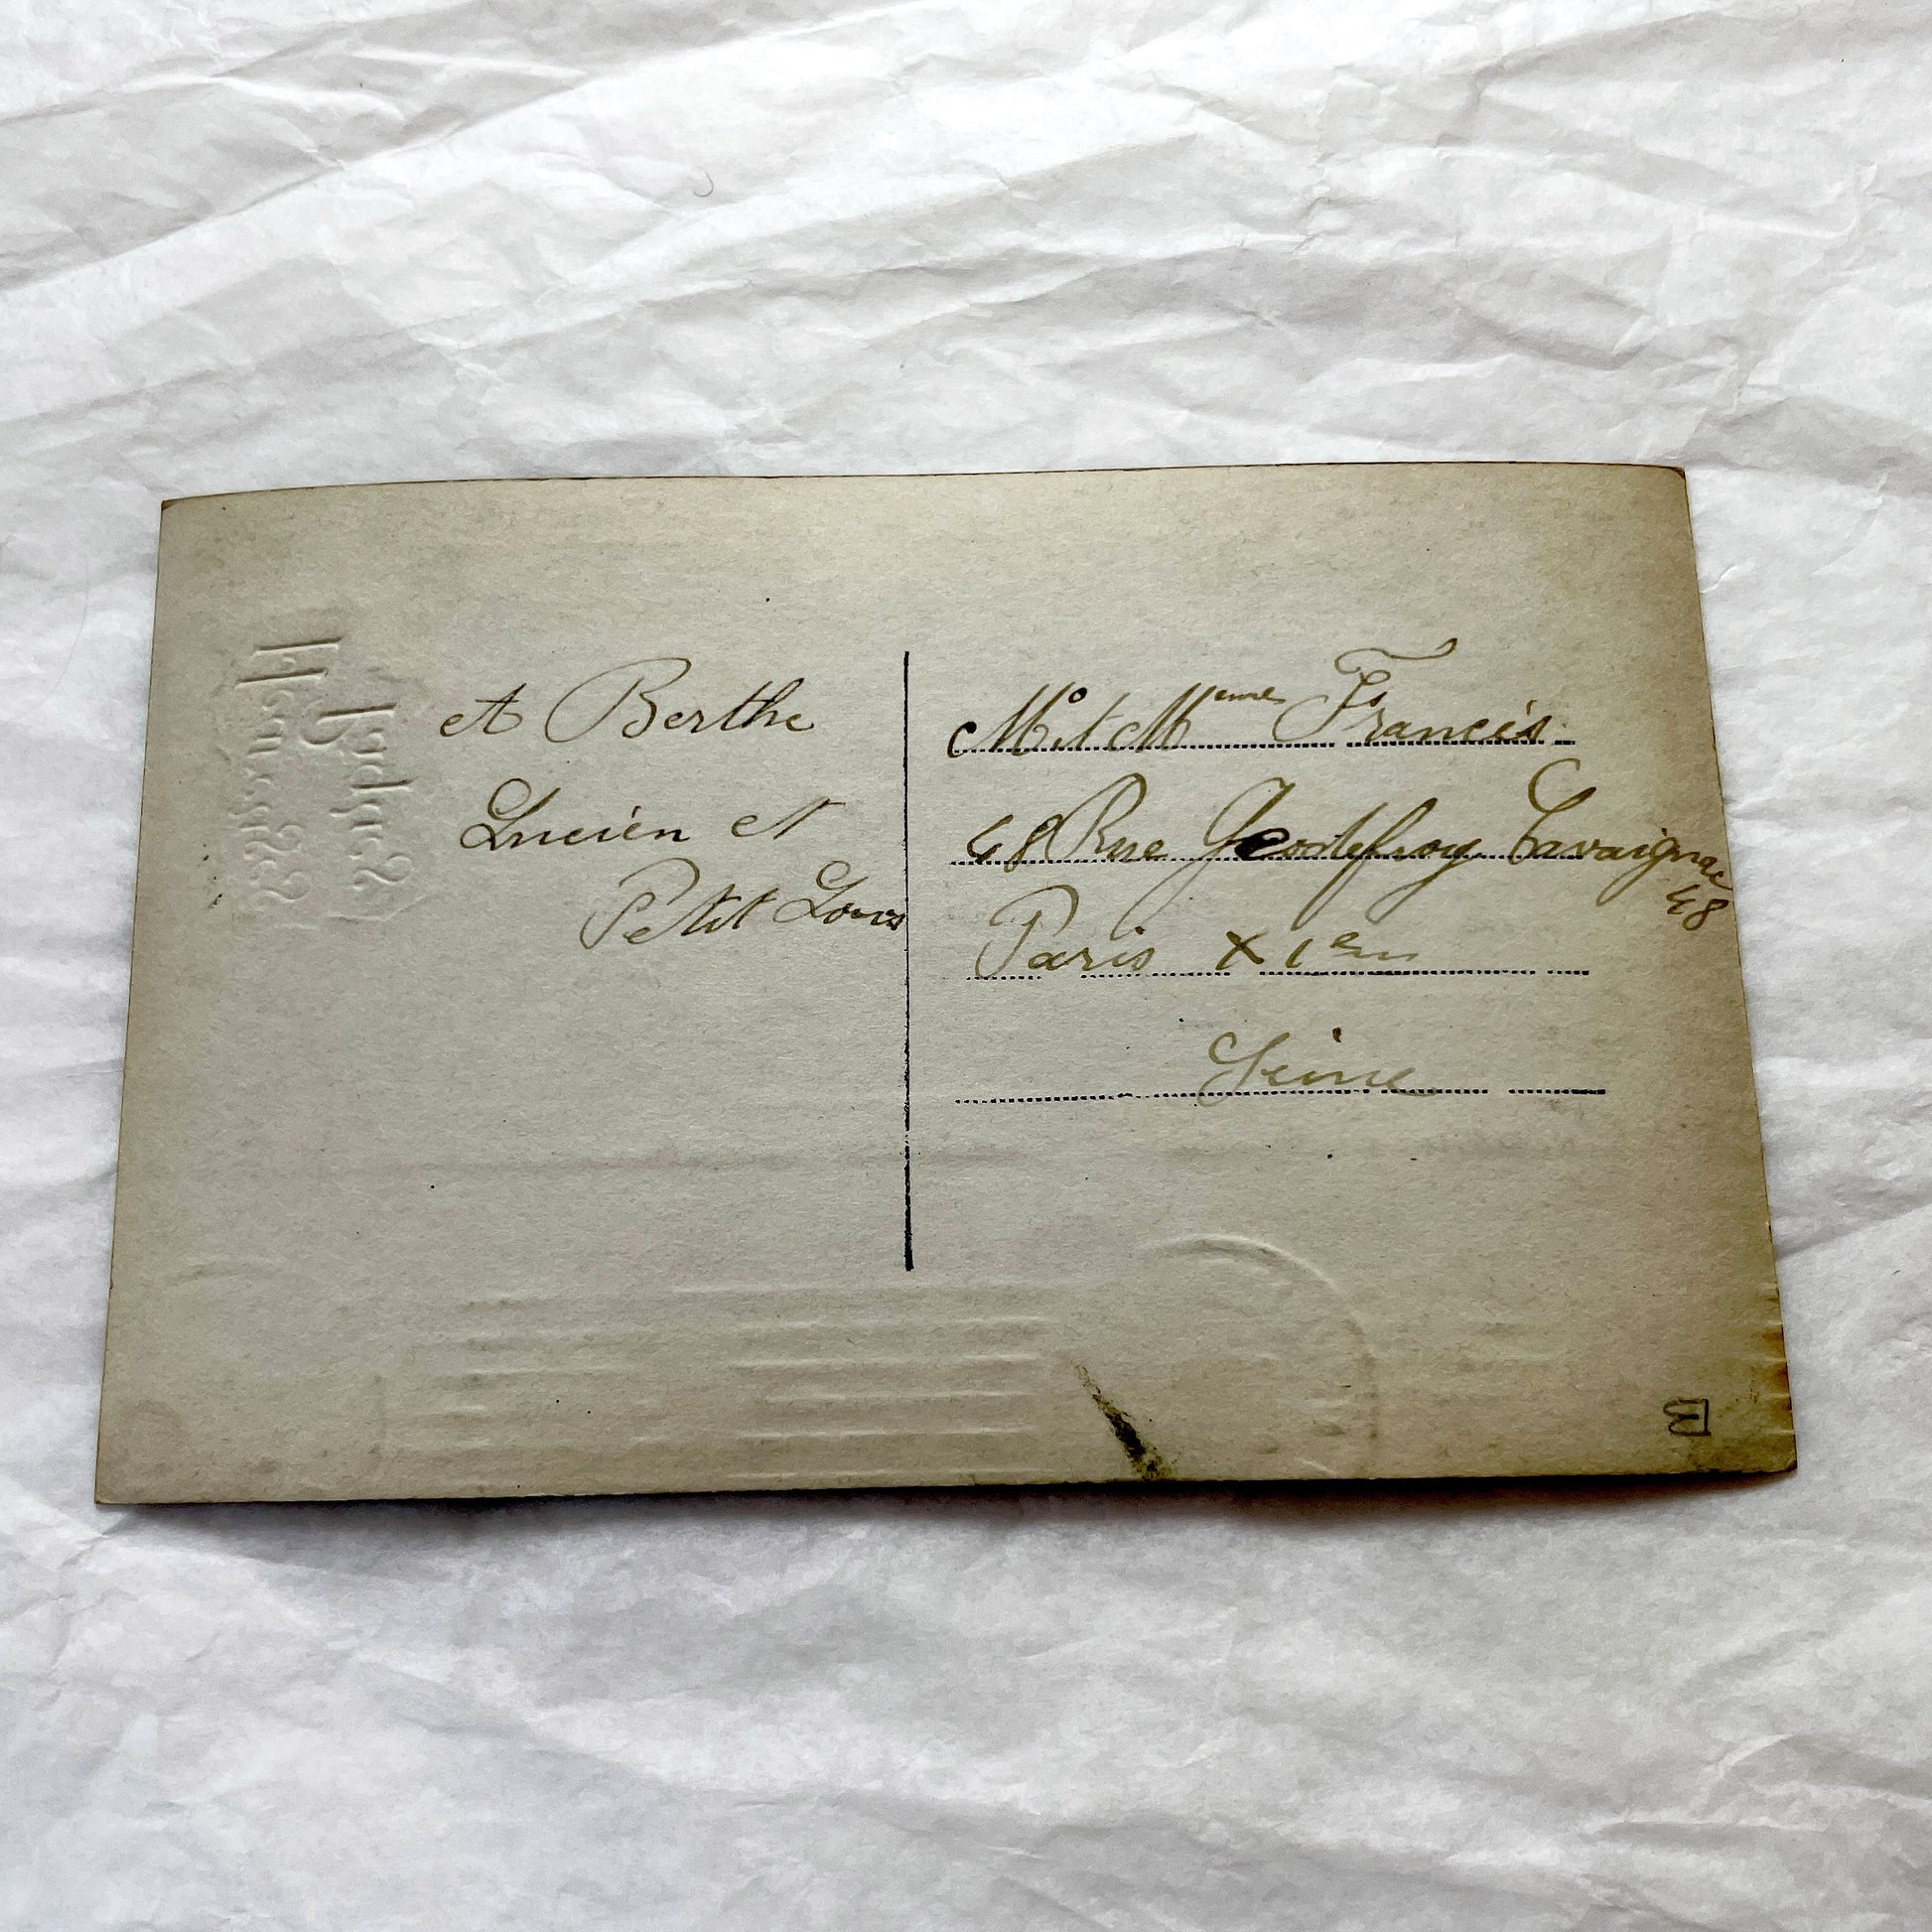 et Berthe
Lucien et
Petit Louis
Mr et Meme Francis
48 Rue Geodefroy Cavaignac
48
Paris XIem
Seine